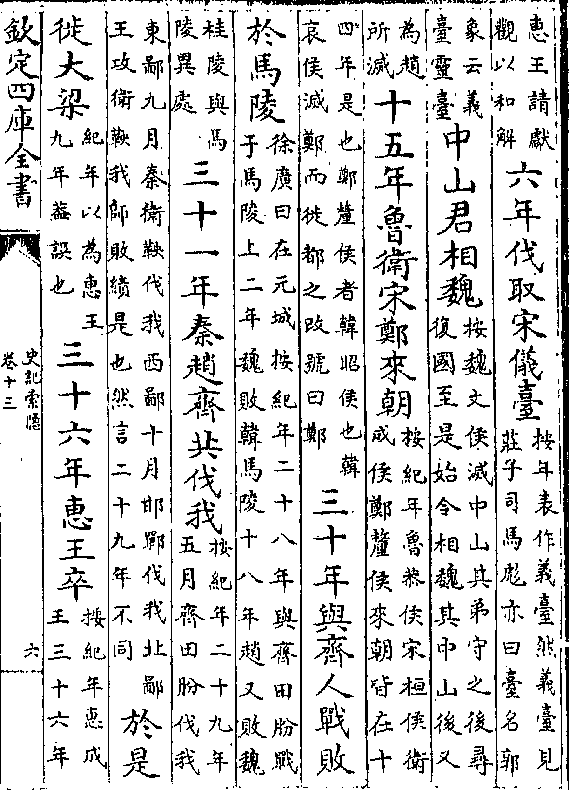 惠王請獻觀以和解六年伐取宋儀臺按年表作義臺然義臺見莊子司馬彪亦曰臺名郭
象云義臺靈臺中山君相魏按魏文侯滅中山其弟守之後尋復國至是始令相魏其中山後又
為趙所滅十五年魯衛宋鄭來朝按紀年魯恭侯宋桓侯衛成侯鄭釐侯來朝皆在十
四年是也鄭釐侯者韓昭侯也韓哀侯滅鄭而徙都之改號曰鄭三十年與齊人戰敗
於馬陵徐廣曰在元城按紀年二十八年與齊田朌戰于馬陵上二年魏敗韓馬陵十八年趙又敗魏
桂陵與馬陵異處三十一年秦趙齊共伐我按紀年二十九年五月齊田朌伐我
東鄙九月秦衛鞅伐我西鄙十月邯鄲伐我北鄙王攻衛鞅我師敗績是也然言二十九年不同於是
徙大梁紀年以為惠王九年蓋誤也三十六年惠王卒按紀年惠成王三十六年
欽定四庫全書
史記索隱
卷十三
六